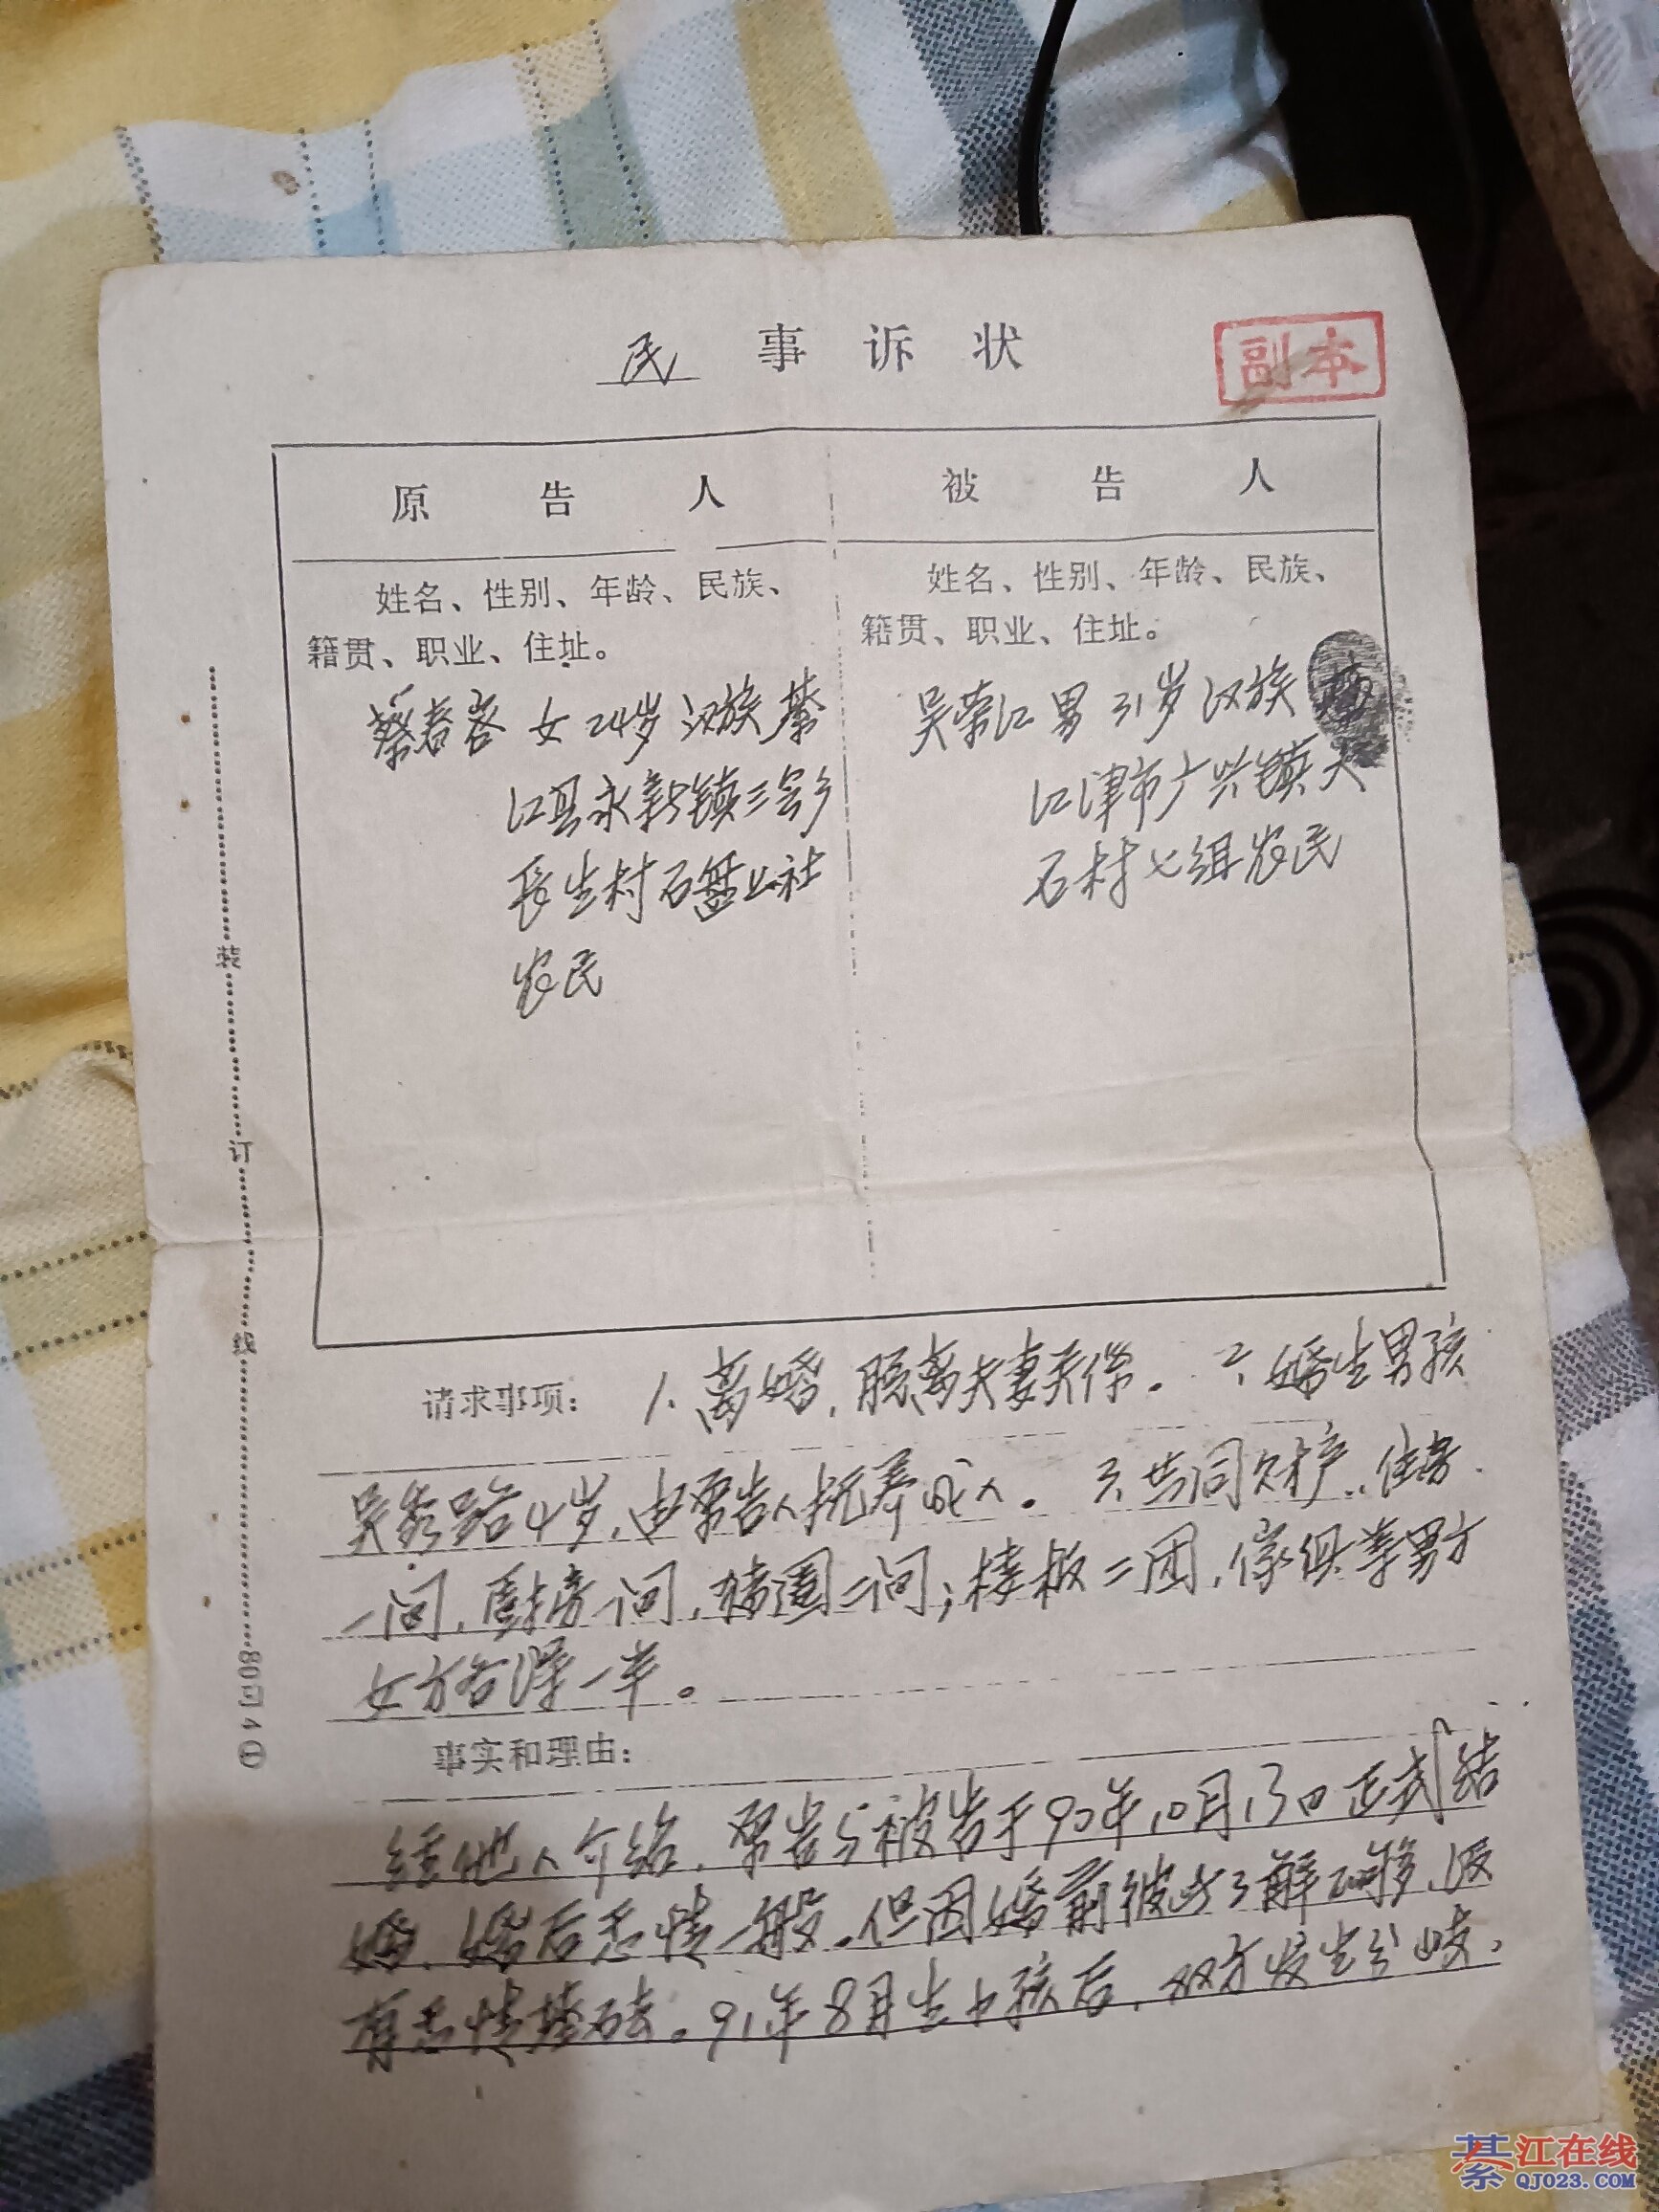 民 事 诉 状
副本
原 告 人
被 告 人
姓名、性别、年龄、民族、
籍贯、职业、住址。
姓名、性别、年龄、民族、
籍贯、职业、住址。
蔡春容 女 24岁 汉族 綦
江县永新镇三会乡
长生村石盘丘社
农民
吴荣江 男 31岁 汉族
江津市广兴镇大
石村七组农民
装
订
线
80司4①
请求事项：1、离婚，脱离夫妻关系。2、婚生男孩
吴 4岁，由原告人抚养成人。3、共同财产，住房
一间，厨房一间，猪圈二间；楼板二团，傢俱等男方
女方各得一半。
事实和理由：
经他人介绍，原告与被告于90年10月13日正式结
婚，婚后感情一般。但因婚前彼此了解不够，没
有感情基础。91年8月生小孩后，双方发生分岐，
綦江在线
QJ023.COM